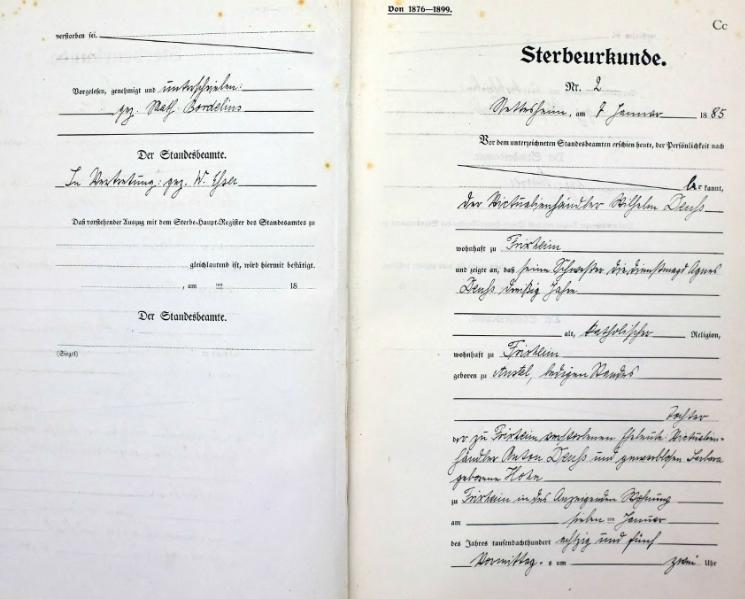 verstorben sei.
Vorgelesen, genehmigt und unterschrieben:
gez. Math. Bordelius
Der Standesbeamte.
In Vertretung: gez. W.
Daß vorstehender Auszug mit dem Sterbe-Haupt-Register des Standesamtes zu
gleichlautend ist, wird hiermit bestätigt.
, am 18
Der Standesbeamte.
(Siegel)
Von 1876—1899.
Cc
Sterbeurkunde.
Nr. 2
Nettesheim, am 7 Januar 1885
Vor dem unterzeichneten Standesbeamten erschien heute, der Persönlichkeit nach
bekannt,
der Victualienhändler Wilhelm
wohnhaft zu Frixheim
und zeigte an, daß seine Schwester die Dienstmagd Agnes
dreißig Jahre
alt, katholischer Religion,
wohnhaft zu Frixheim
geboren zu Anstel, ledigen Standes
Tochter
der zu Frixheim verstorbenen Eheleute Victualien-
händler Anton und gewerblosen Barbara
geborene
zu Frixheim in des Anzeigenden Wohnung
am sieben — Januar
des Jahres tausendachthundert achtzig und fünf
Vormittag. s um zwei Uhr